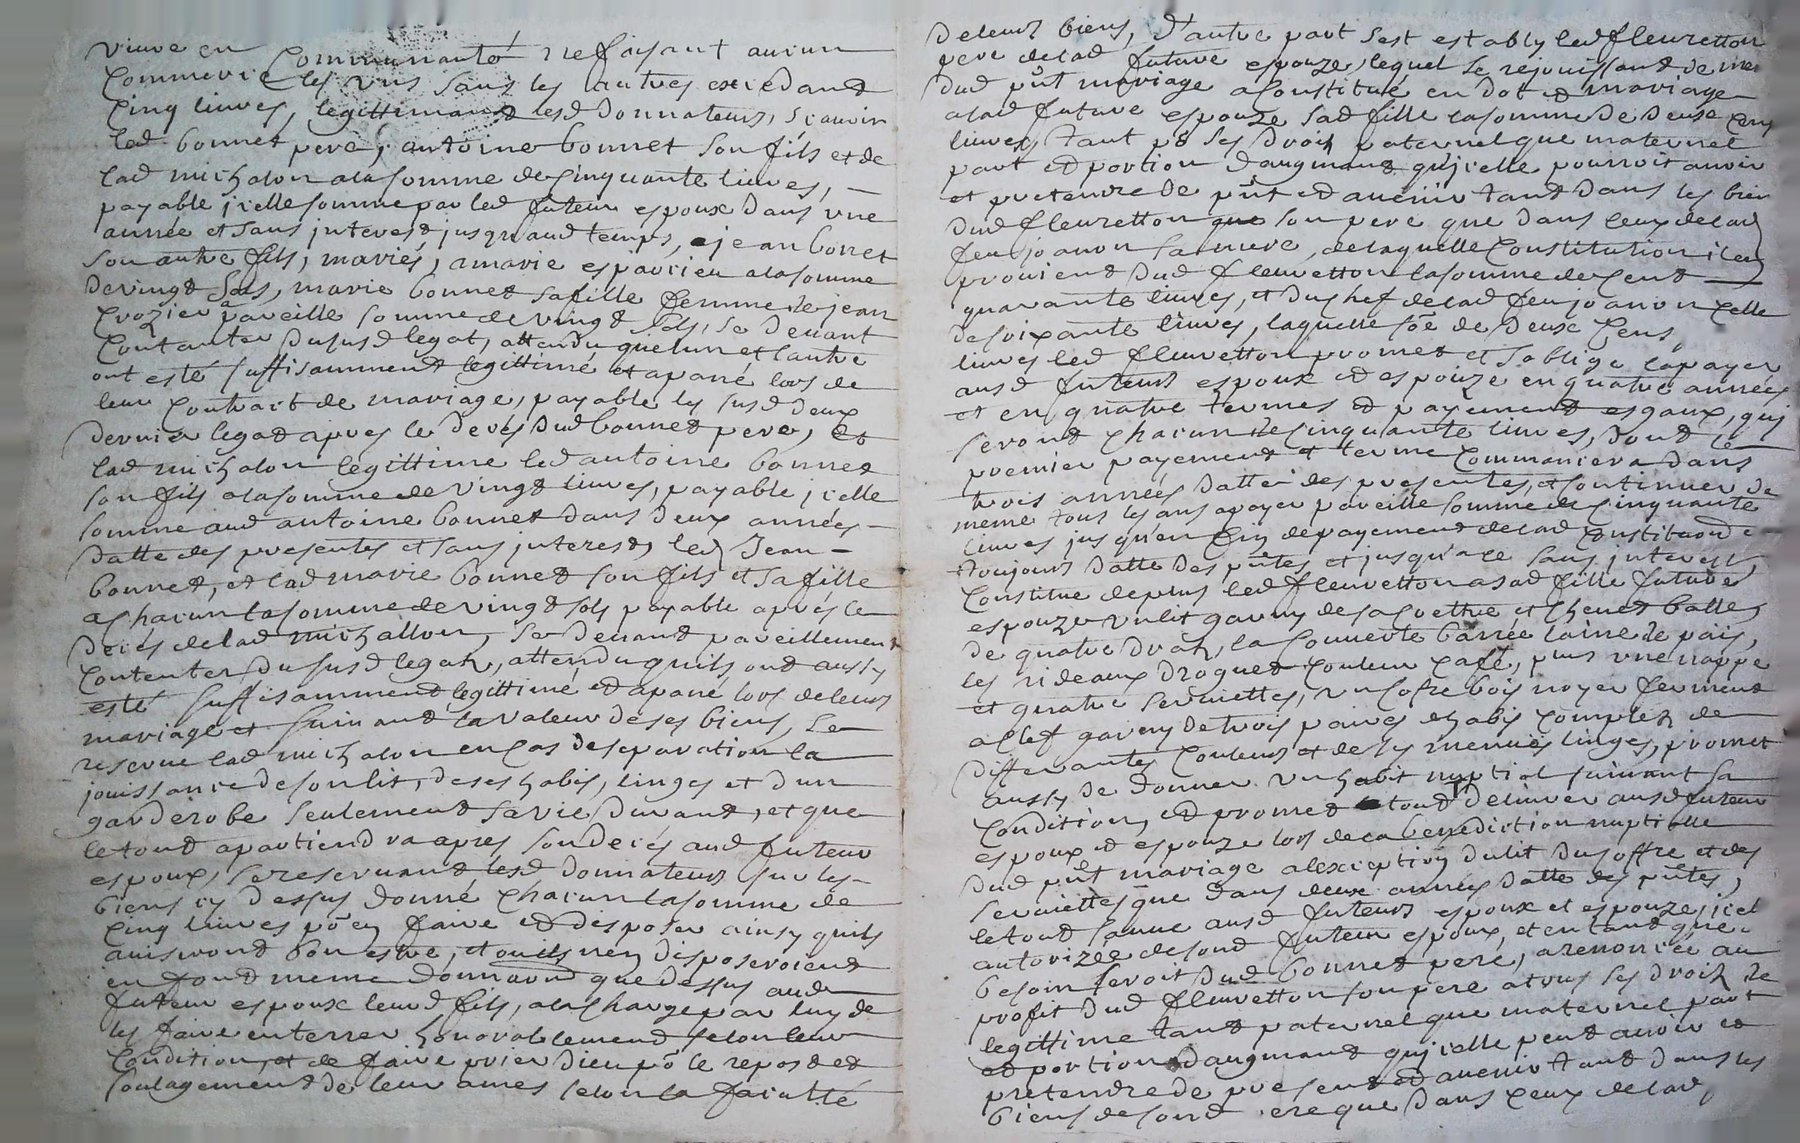 viure en communauté ne faisant aucun
commerce les uns sans les autres exedant
cinq liures, legittimant lesd donnateurs, scauoir
led bonnet pere, antoine bonnet son fils et de
lad michalon a la somme de cinquante liures,
payable jcelle somme par led futeur espoux dans une
année et sans jnterest jusqu'aud temps, a jean bonet
son autre fils, mariés, a marie esparcieu a la somme
de vingt sols, marie bonnet sa fille femme de jean
crozier a pareille somme de vingt sols, se deuant
contanter du susd legat, attandu que lun et lautre
ont esté suffisamment legittimé et apané lors de
leur contrait de mariage, payable les susd deux
dernier legat apres le decés dud bonnet pere, et
lad michalon legittime led antoine bonnet
son fils a la somme de vingt liures, payable jcelle
somme aud antoine bonnet dans deux années
datte des presentes et sans jnterest, led Jean
bonnet, et lad marie bonnet son fils et sa fille
a chacun la somme de vingt sols payable aprés le
decés de lad michallon, se deuant pareillement
contenter du susd legat, attendu quils ont aussy
esté suffisamment legittimé et apané lors de leurs
mariage et suiuant la valeur de ses biens, se
reserue lad michalon en cas de separation la
jouissance de son lit, de ses habis, linges et d'un
garderobe seulement sa vie durant, et que
le tout apartiendra apres son decés aud futeur
espoux, se reseruant lesd donnateurs sur les
biens cy dessus donné chacun la somme de
cinq liures po en faire et disposer ainsy quils
auiseront bon estre, et ou ils nen disposeroient
en font meme donnaon que dessus aud
futeur espoux leurd fils, a la charge par luy de
les faire enterrer honorablement selon leur
condition, et de faire prier dieu po le repost et
soulagement de leur ames selon la faculté
de leurs biens, d'autre part s'est estably led fleuretton
pere de lad future espouze, lequel se rejouissant de
dud pnt mariage a constitué en dot et mariage
a lad future espouze sad fille la somme de deux cens
liures, tant po ses droits paternel que maternel
part et portion d'augmant qu'jcelle pourroit auoir
et pretendre de pnt et auenir tant dans les bien
dud fleuretton que son pere que dans ceux de lad
feu joanon sa mere, de laquelle constitution il en
prouient dud fleuretton la somme de cent
quarante liures, et du chef de lad feu joanon celle
de soixante liures, laquelle soe de deux cens
liures led fleuretton promet et s'oblige la payer
ausd futeurs espoux et espouze en quatre années
et en quatre termes et payement esgaux, qui
seront chacun de cinquante liures, dont le
premier payement et terme commancera dans
trois années datte des presentes, et continuer de
meme tous les ans a payer pareille somme de cinquante
liures jusqu'en fin de payement de lad constitaon
toujours datte des pntes et jusqu'a ce sans jnterest,
constitue de plus led fleuretton a sad fille future
espouze un lit garny de sa coettre et cheuet balle,
de quatre drah, la couuerte barrée laine de païs,
les rideaux droguet couleur café, plus une nappe
et quatre seruiettes, un cofre bois noyer fermant
a clef garny de trois paires d'habis complets de
differantes couleurs et de ses menües linges, promet
aussy de donner un habit nuptial suiuant sa
condition, et promet le tout deliurer ausd futeur
espoux et espouze lors de la benediction nuptialle
dud pnt mariage a l'exception du lit du coffre et des
seruiettes que dans deux années datte des pntes,
le tout sauue ausd futeurs espoux et espouze, jcelle
autorizée de sond futeur espoux, et en tant que
besoin seroit dud bonnet pere, a renoncée au
profit dud fleuretton son pere a tous ses droits de
legittime tant paternel que maternel part
et portion d'augmant qu'jcelle peut auoir et
pretendre de present et auenir tant dans les
biens de sond pere que dans ceux de lad